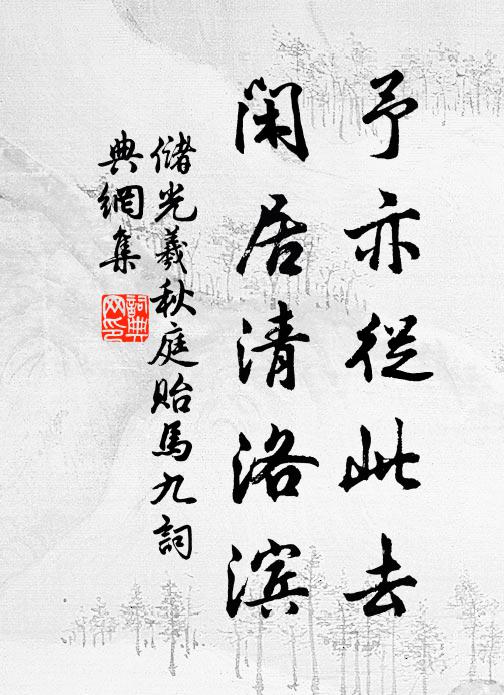 予亦從此去
閑居清洛滨
儲光羲秋庭貽馬九詞
典網集
詞典网印